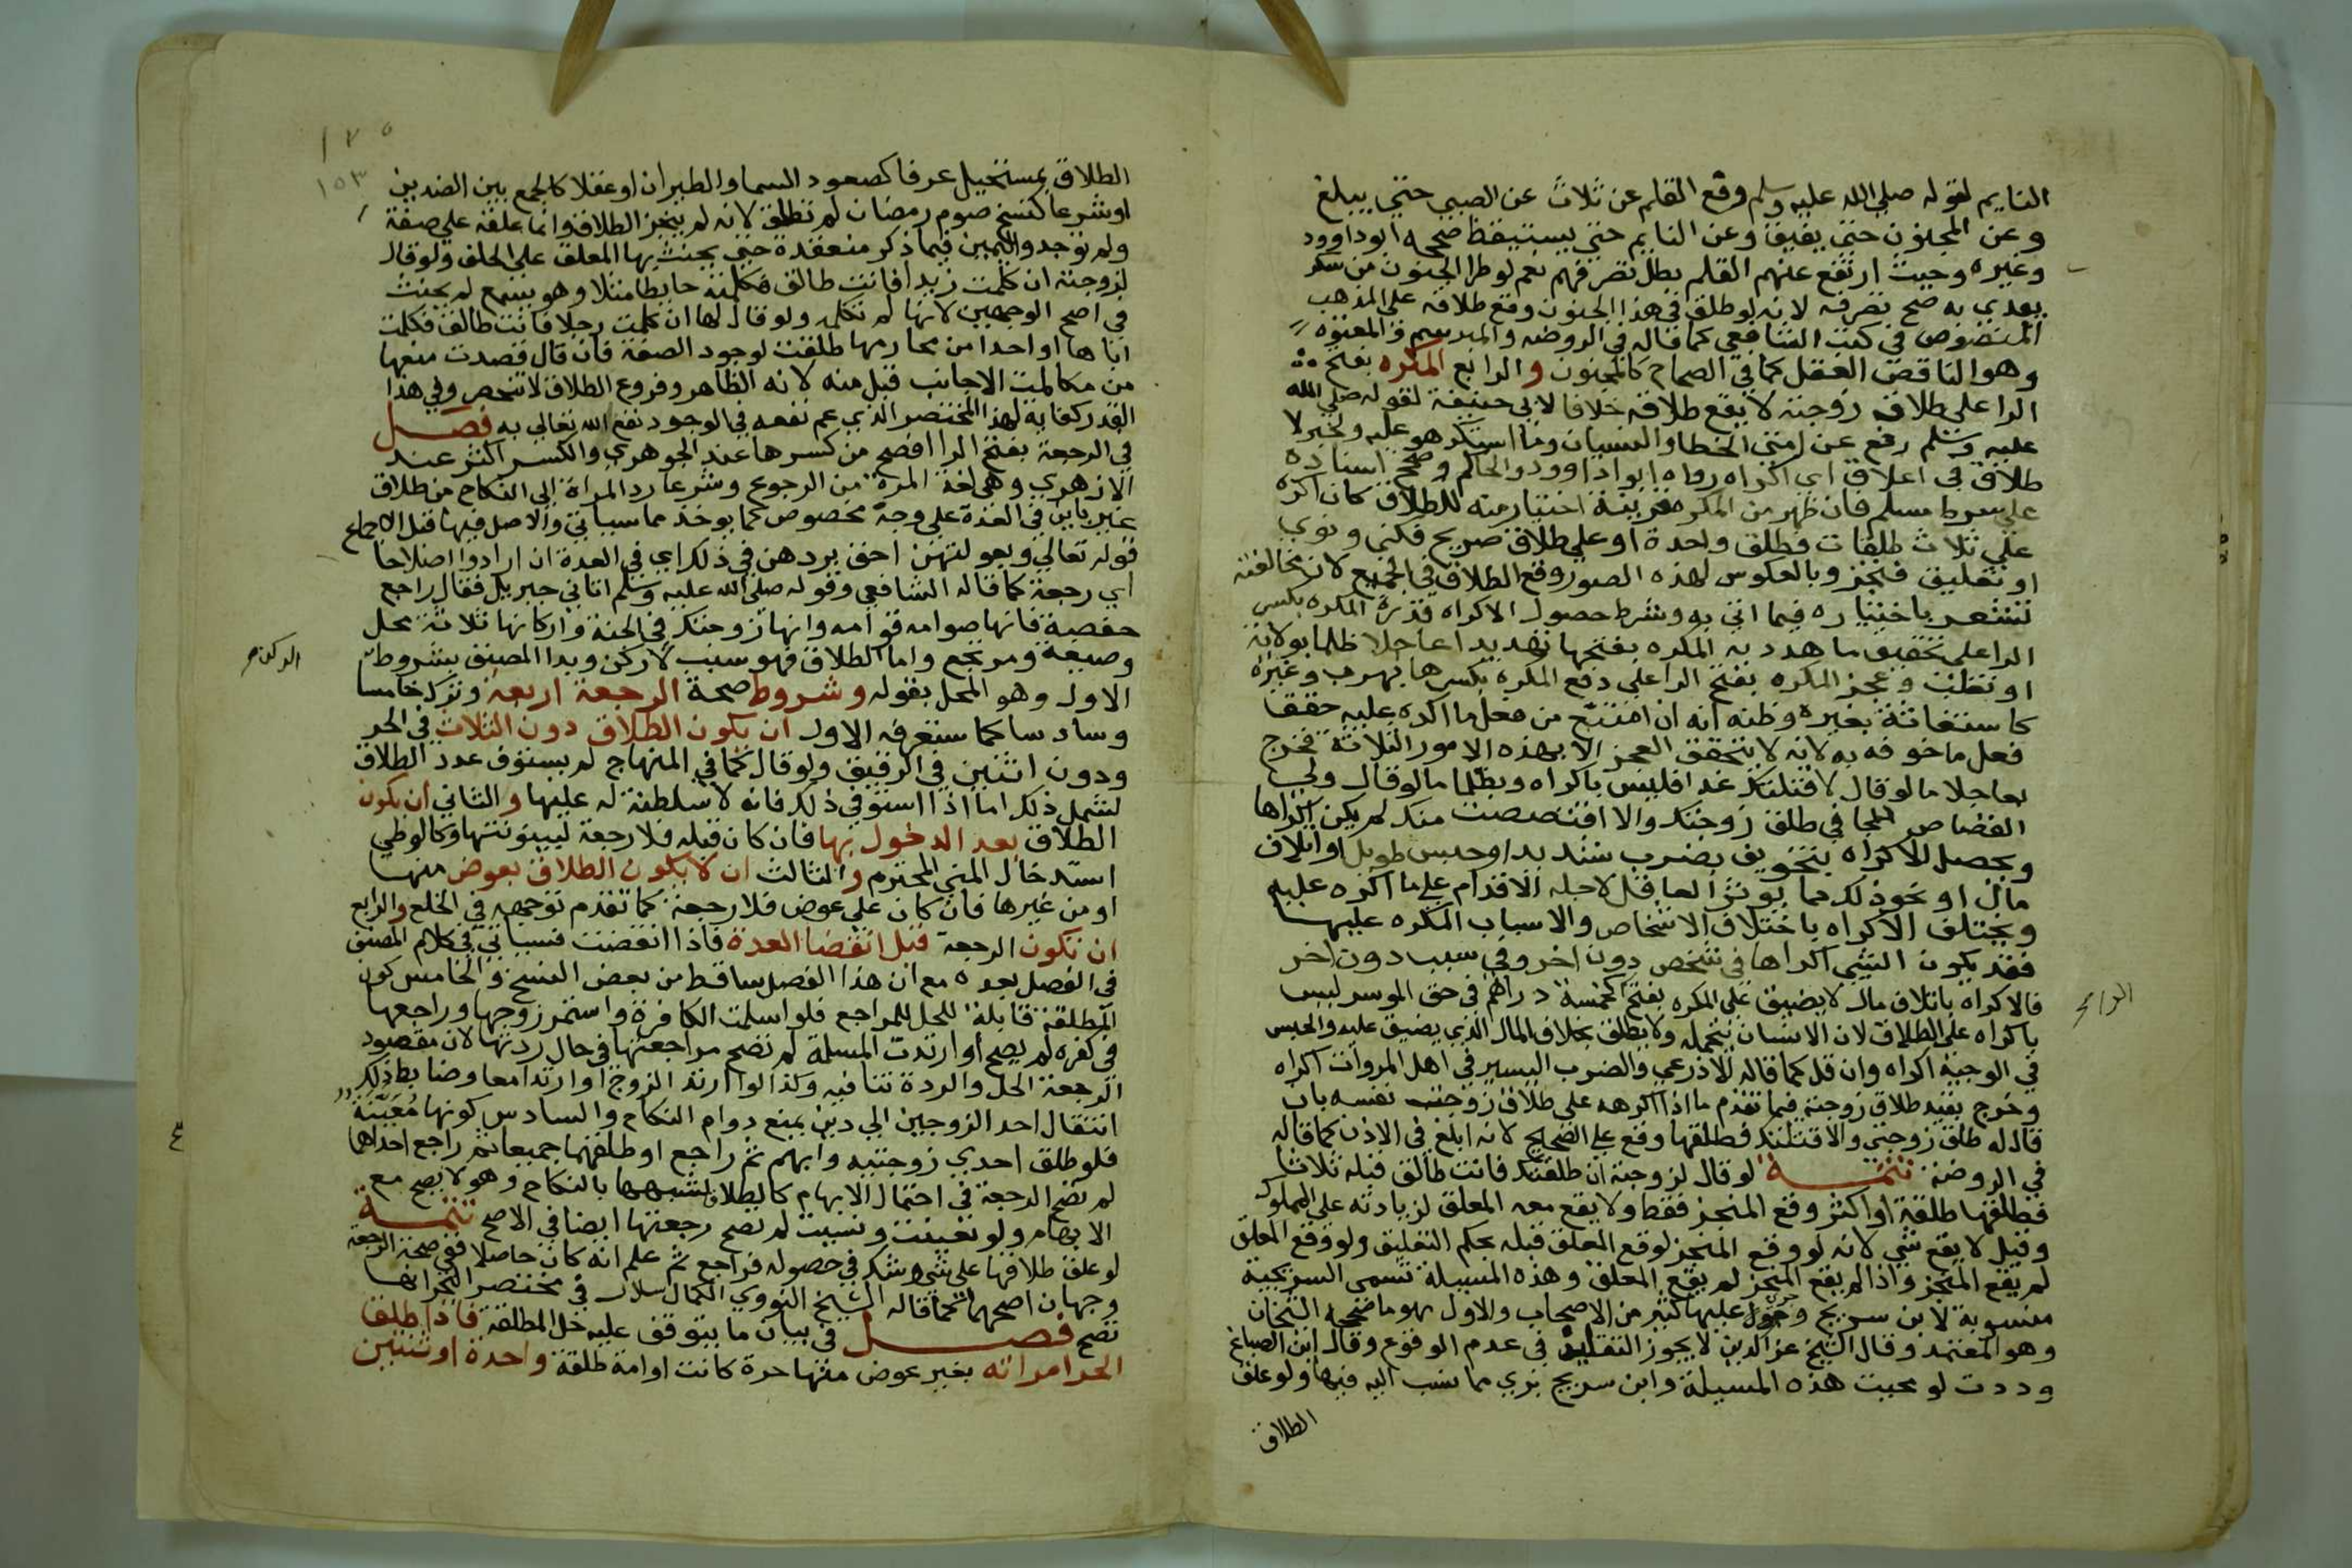 النايم لقوله صلى الله عليه وسلم رفع القلم عن ثلاث عن الصبي حتى يبلغ
وعن المجنون حتى يفيق وعن النايم حتى يستيقظ صححه ابو داوود
وغيره وحيث ارتفع عنهم القلم بطل تصرفهم نعم لو طرا الجنون من سكر
تعدي به صح تصرفه لانه لو طلق في هذا الجنون وقع طلاقه على المذهب
المنصوص في كتب الشافعي كما قاله في الروضه والمبرسم والمعتوه
وهو الناقص العقل كما في الصحاح كالمجنون والرابع المكره بفتح
الرا على طلاق زوجته لا يقع طلاقه خلافا لابي حنيفة لقوله صلى الله
عليه وسلم رفع عن امتي الخطا والنسيان وما استكرهو عليه ولخبر لا
طلاق في اغلاق اي اكراه رواه ابو داوود والحاكم وصحح اسناده
على شرط مسلم فان ظهر من المكره قرينة اختيار منه للطلاق كان اكره
على ثلاث طلقات فطلق واحدة او على طلاق صريح فكنى ونوى
او تعليق فنجز وبالعكوس لهذه الصور وقع الطلاق في الجميع لان مخالفته
تشعر باختياره فيما اتى به وشرط حصول الاكراه قدرة المكره بكسر
الرا على تحقيق ما هدد به المكره بفتحها تهديدا عاجلا ظلما بولاية
او تغلب وعجز المكره بفتح الرا على دفع المكره بكسرها بهرب وغيره
كاستغاثة بغيره وظنه انه ان امتنع من فعل ما اكره عليه حقق
فعل ما خوفه به لانه لا يتحقق العجز الا بهذه الامور الثلاثة فخرج
بعاجلا ما لو قال لاقتلنك غدا فليس باكراه وبظلما ما لو قال ولي
القصاص للجاني طلق زوجتك والا اقتصصت منك لم يكن اكراها
ويحصل الاكراه بتخويف بضرب شديد او حبس طويل او اتلاف
مال او نحو ذلك مما يوثر العاقل لاجله الاقدام على ما اكره عليه
ويختلف الاكراه باختلاف الاشخاص والاسباب المكره عليها
فقد يكون الشي اكراها في شخص دون اخر وفي سبب دون اخر
فالاكراه باتلاف مال لا يضيق على المكره بفتح الرا كخمسة دراهم في حق الموسر ليس
باكراه على الطلاق لان الانسان يتحمله ولا يطلق بخلاف المال الذي يضيق عليه والحبس
في الوجيه اكراه وان قل كما قاله الاذرعي والضرب اليسير في اهل المروات اكراه
وخرج بقيد طلاق زوجته فيما تقدم ما اذا اكرهه على طلاق زوجة نفسه بان
قال له طلق زوجتي والا قتلتك فطلقها وقع على الصحيح لانه ابلغ في الاذن كما قاله
في الروضة تتمة لو قال لزوجته ان طلقتك فانت طالق قبله ثلاثا
فطلقها طلقة او اكثر وقع المنجز فقط ولا يقع معه المعلق لزيادته على المملوك
وقيل لا يقع شي لانه لو وقع المنجز لوقع المعلق قبله بحكم التعليق ولو وقع المعلق
لم يقع المنجز واذا لم يقع المنجز لم يقع المعلق وهذه المسيلة تسمى السريجية
منسوبة لابن سريج وجرى عليها كثير من الاصحاب والاول هو ما صححه الشيخان
وهو المعتمد وقال الشيخ عز الدين لا يجوز التقليد في عدم الوقوع وقال ابن الصباغ
وددت لو محيت هذه المسيلة وابن سريج بري مما نسب اليه فيها ولو علق
الطلاق
١٧٥
١٥٣
الطلاق بمستحيل عرفا كصعود السما والطيران او عقلا كالجمع بين الضدين
او شرعا كنسخ صوم رمضان لم تطلق لانه لم ينجز الطلاق وانما علقه على صفة
ولم توجد واليمين فيما ذكر منعقدة حتى يحنث بها المعلق على الحلف ولو قال
لزوجته ان كلمت زيدا فانت طالق فكلمت حايطا مثلا وهو يسمع لم يحنث
في اصح الوجهين لانها لم تكلمه ولو قال لها ان كلمت رجلا فانت طالق فكلمت
اباها او احدا من محارمها طلقت لوجود الصفة فان قال قصدت منعها
من مكالمة الاجانب قبل منه لانه الظاهر وفروع الطلاق لا تنحصر وفي هذا
القدر كفاية لهذا المختصر الذي عم نفعه في الوجود نفع الله تعالى به فصل
في الرجعة بفتح الرا افصح من كسرها عند الجوهري والكسر اكثر عند
الازهري وهي لغة المرة من الرجوع وشرعا رد المراة الى النكاح من طلاق
غير باين في العدة على وجه مخصوص كما يوخذ مما سياتي والاصل فيها قبل الاجماع
قوله تعالى وبعولتهن احق بردهن في ذلك اي في العدة ان ارادوا اصلاحا
اي رجعة كما قاله الشافعي وقوله صلى الله عليه وسلم اتاني جبريل فقال راجع
حفصة فانها صوامه قوامه وانها زوجتك في الجنة واركانها ثلاثة محل
وصيغة ومرتجع واما الطلاق فهو سبب لا ركن وبدا المصنف بشروط
الركن
الاول وهو المحل بقوله وشروط صحة الرجعة اربعة وترك خامسا
وسادسا كما ستعرفه الاول ان يكون الطلاق دون الثلاث في الحر
ودون اثنين في الرقيق ولو قال كما في المنهاج لم يستوف عدد الطلاق
لشمل ذلك اما اذا استوفى ذلك فانه لا سلطنة له عليها والثاني ان يكون
الطلاق بعد الدخول بها فان كان قبله فلا رجعة لبينونتها وكالوطي
استدخال المني المحترم والثالث ان لا يكون الطلاق بعوض منها
او من غيرها فان كان على عوض فلا رجعة كما تقدم توجيهه في الخلع والرابع
ان تكون الرجعة قبل انقضا العدة فاذا انقضت فسياتي في كلام المصنف
في الفصل بعده مع ان هذا الفصل ساقط من بعض النسخ والخامس كون
المطلقة قابلة للحل للمراجع فلو اسلمت الكافرة واستمر زوجها وراجعها
في كفره لم يصح او ارتدت المسلمة لم تصح مراجعتها في حال ردتها لان مقصود
الرجعة الحل والردة تنافيه وكذا لو ارتد الزوج او ارتدا معا وضابط ذلك
انتقال احد الزوجين الى دين يمنع دوام النكاح والسادس كونها معينة
فلو طلق احدى زوجتيه وابهم ثم راجع او طلقهما جميعا ثم راجع احداهما
لم تصح الرجعة في احتمال الابهام كالطلاق لشبهها بالنكاح وهو لا يصح مع
الابهام ولو تعينت ونسيت لم تصح رجعتها ايضا في الاصح تتمة
لو علق طلاقها على شي وشك في حصوله فراجع ثم علم انه كان حاصلا ففي صحة الرجعة
وجهان اصحهما كما قاله الشيخ النووي الكمال سلار في مختصر البحر انها
تصح فصل في بيان ما يتوقف عليه حل المطلقة فاذا طلق
الحر امراته بغير عوض منها حرة كانت او امة طلقة واحدة او ثنتين